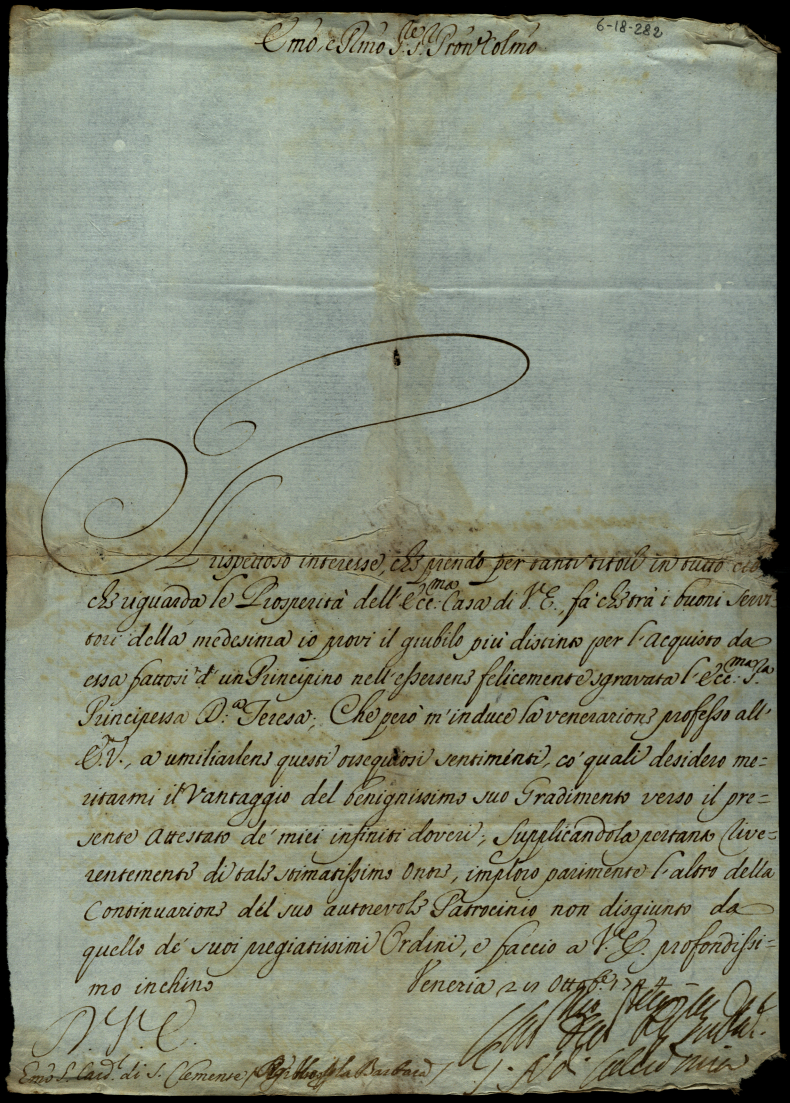 6-18-282
Emo, e Rmo Sre, Sr, Pron Colmo
Il rispettoso interesse, che prendo per tanti titoli in tutto ciò
che riguarda le Prosperità dell' Ecc:ma Casa di V.E., fà che trà i buoni Servi-
tori della medesima io provi il giubilo più distinto per l'acquisto da
essa fattosi d' un Principino nell' essersene felicemente sgravata l' Ecc:ma Sra
Principessa D:a Teresa; Che però m'induce la venerazione professo all'
E.V., a umiliarlene questi ossequiosi sentimenti, co' quali desidero me-
ritarmi il Vantaggio del benignissimo suo Gradimento verso il pre-
sente Attestato de' miei infiniti doveri; Supplicandola pertanto rive-
rentemente di tale stimatissimo Onore, imploro parimente l'altro della
Continuazione del suo autorevole Patrocinio non disgiunto da
quello de' suoi pregiatissimi Ordini, e faccio a V.E. profondissi-
mo inchino
Venezia 21 Ottobre 1744
D. V. E.
Emo S. Card. di S. Clemente / Barbara /